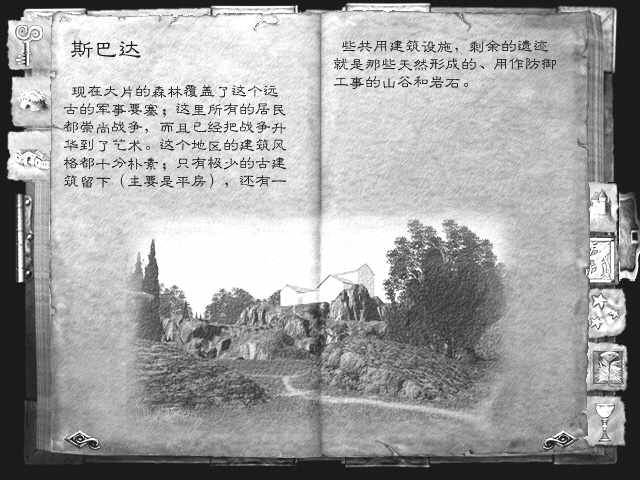 斯巴达
现在大片的森林覆盖了这个远
古的军事要塞；这里所有的居民
都崇尚战争，而且已经把战争升
华到了艺术。这个地区的建筑风
格都十分朴素；只有极少的古建
筑留下（主要是平房），还有一
些共用建筑设施，剩余的遗迹
就是那些天然形成的、用作防御
工事的山谷和岩石。